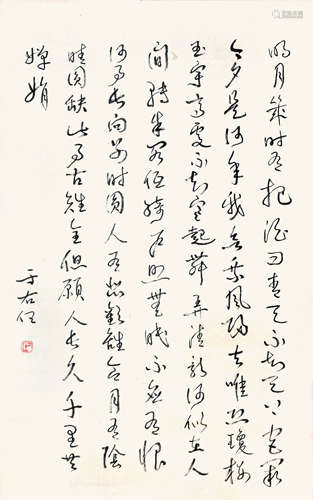 明月幾時有把酒問青天不知天上宮闕
今夕是何年我欲乘風歸去唯恐瓊樓
玉宇高處不勝寒起舞弄清影何似在人
間轉朱閣低綺戶照無眠不應有恨
何事長向別時圓人有悲歡離合月有陰
晴圓缺此事古難全但願人長久千里共
嬋娟
于右任